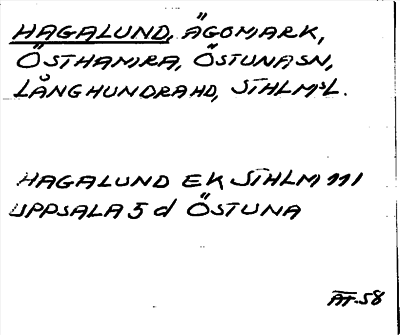 HAGALUND, ÄGOMARK,
ÖSTHAMRA, ÖSTUNASN,
LÅNGHUNDRAHD, STHLMSL.
HAGALUND EK STHLM 111
UPPSALA 5 d ÖSTUNA
ÄT-58